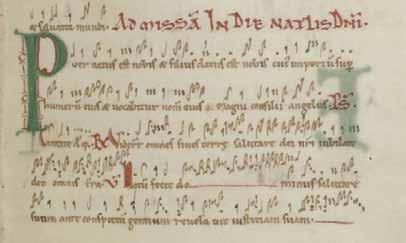 de salvator mundi. AD MISSA IN DIE NATLIS DNI.
Puer natus est nobis & filius datus est nobis cuius imperium sup
humerum eius & vocabitur nom eius magni consilii angelus Ps.
Cantate d q. Viderunt omnes fines terrę salutare dei nri iubilate
deo omnis terra V Notum fecit dominus salutare
suum ante conspectum gentium revelavit iustitiam suam.